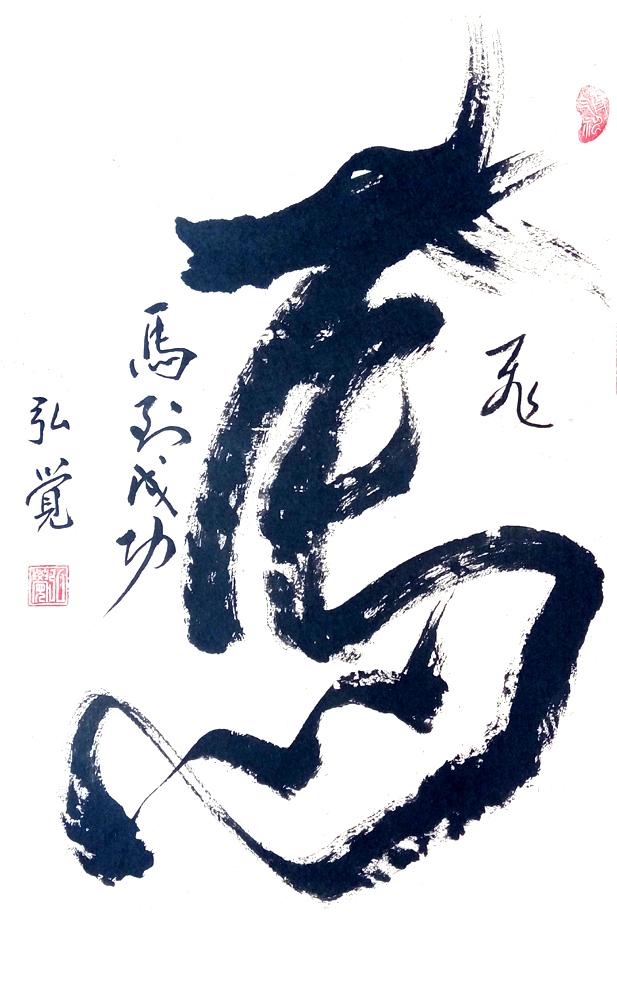 飛
馬
馬到成功
弘覚